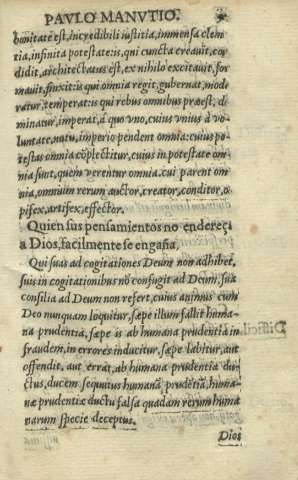 PAVLO MANVTIO.
bonitate est, incredibili iustitia, immensa clemẽ
tia, infinita potestate: is, qui cuncta creauit, con
didit, architectatus est, ex nihilo excitauit, for
mauit, finxit: is qui omnia regit, gubernat, mode
ratur, temperat: is qui rebus omnibus præest, do
minatur, imperat, à quo vno, cuius vnius à vo-
luntate, nutu, imperio pendent omnia: cuius po-
testas omnia cõplectitur, cuius in potestate om
nia sunt, quem verentur omnia, cui parent om
nia, omnium rerum auctor, creator, conditor, o-
pifex, artifex, effector.
Quien sus pensamientos no endereça
a Dios, facilmente se engaña,
Qui suas ad cogitationes Deum non adhibet,
suis in cogitationibus nõ confugit ad Deum, sua
consilia ad Deum non refert, cuius animus cum
Deo nunquam loquitur, sæpe illum fallit huma-
na prudentia, sæpe is ab humana prudentia in
fraudem, in errores inducitur, sæpe labitur, aut
offendit, aut errat, ab humana prudentia du-
ctus, ducem sequutus humanã prudẽtiã, huma-
næ prudentiæ ductu falsa quadam rerum huma
narum specie deceptus.
Dios